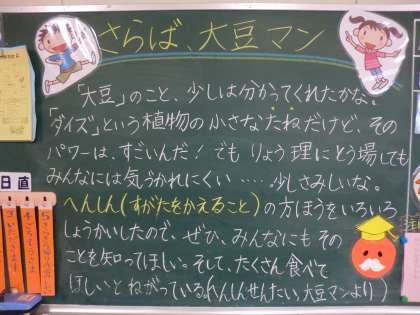 さらば、大豆マン
「大豆」のこと、少しは分かってくれたかな。
「ダイズ」という植物の小さなたねだけど、その
パワーは、すごいんだ！でもりょう理にとう場しても
みんなには気づかれにくい……少しさみしいな。
へんしん(すがたをかえること)の方ほうをいろいろ
しょうかいしたので、ぜひ、みんなにもその
ことを知ってほしい。そして、たくさん食べて
ほしいとねがっている。(へんしんせんたい大豆マンより)
日直